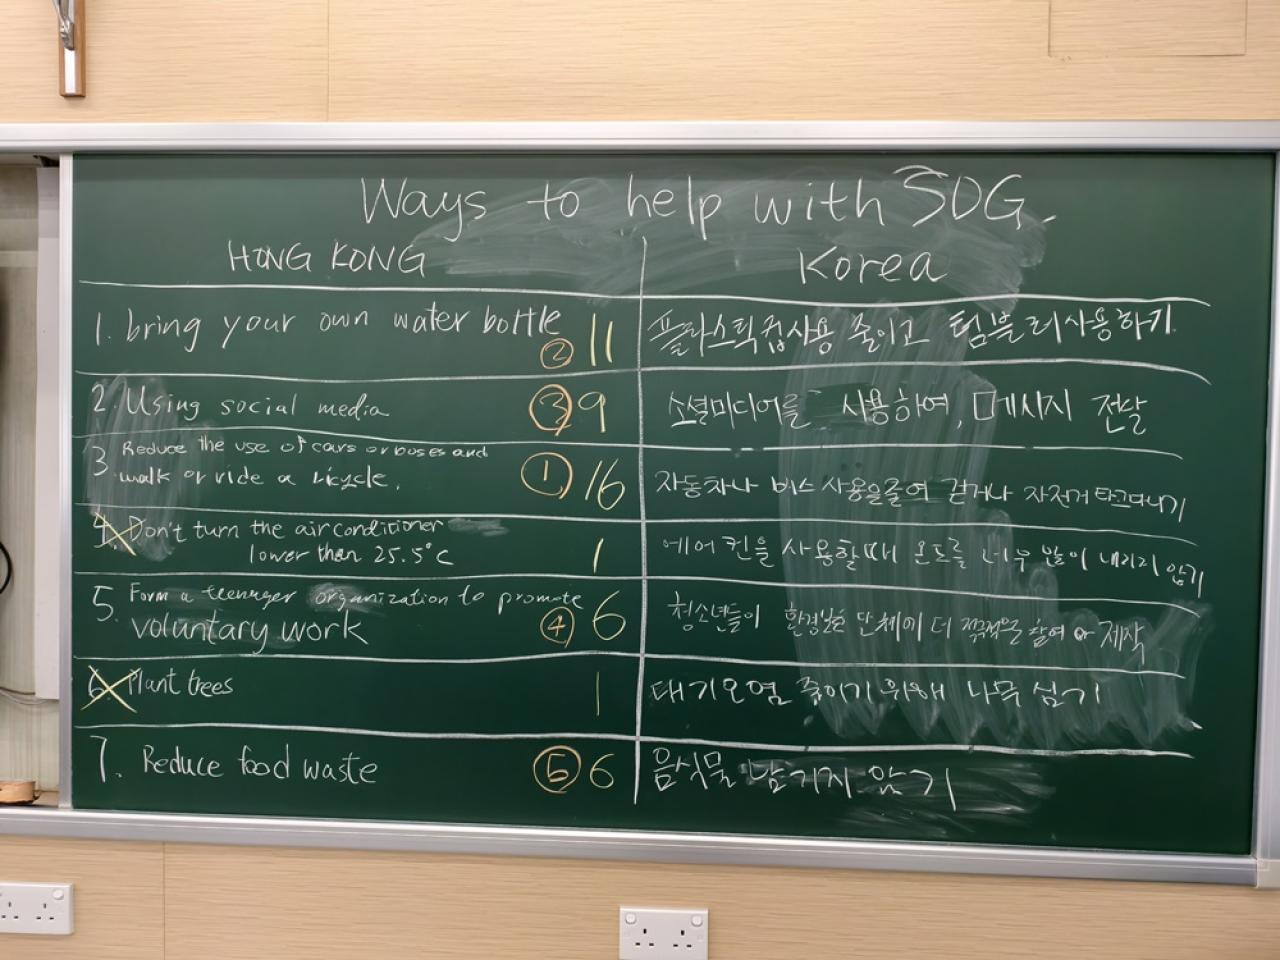 Ways to help with SDG.
HONG KONG
Korea
1. bring your own water bottle
② 11
플라스틱컵사용 줄이고 텀블러사용하기
2. Using social media
③ 9
소셜미디어를 사용하여, 메시지 전달
3 Reduce the use of cars or buses and
walk or ride a bicycle.
① 16
자동차나 버스 사용을줄여 걷거나 자전거 타고다니기
4. Don't turn the air conditioner
lower than 25.5°C
1
에어컨을 사용할때 온도를 너무 많이 내리지 않기
5. Form a teenager organization to promote
voluntary work
④ 6
청소년들이 환경보호 단체에 더 제작
6. Plant trees
1
대기오염 줄이기 위해 나무 심기
7. Reduce food waste
⑤ 6
음식물 남기지 않기